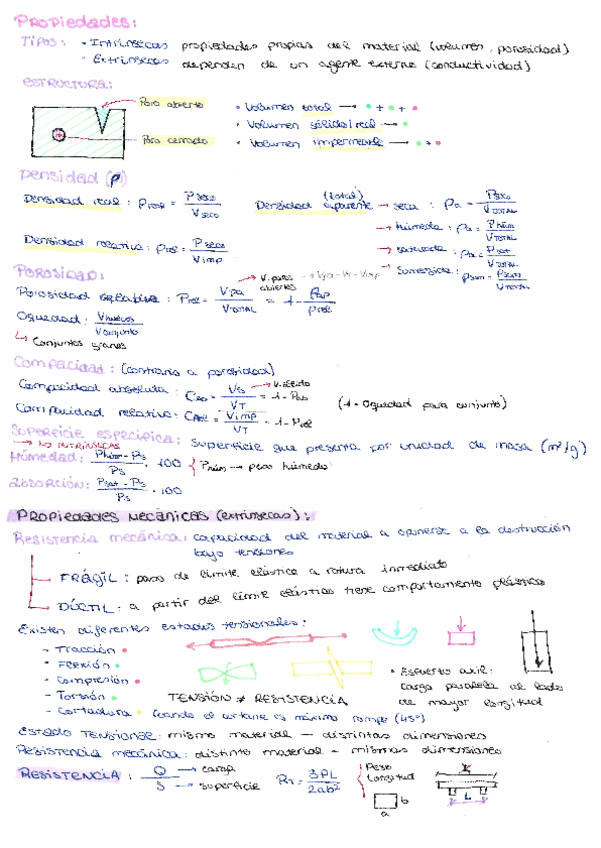 PROPIEDADES:
TIPOS: - Intrínsecas propiedades propias del material (volumen, porosidad)
- Extrínsecas dependen de un agente externo (conductividad)
ESTRUCTURA:
Poro abierto
Poro cerrado
• Volumen total → • + • + •
• Volumen sólido/real → •
• Volumen impermeable → • + •
Densidad (ρ)
Densidad real: ρreal = Pseco / Vseco
Densidad aparente (total) → seca: ρa = Pseco / VTOTAL
→ húmeda: ρa = Phúm / VTOTAL
Densidad relativa: ρrel = Pseco / Vimp
→ saturada: ρa = Psat / VTOTAL
→ Sumergida: ρsum = Psum / VTOTAL
POROSIDAD:
V. poros abiertos → Vpa = VT - Vimp
Porosidad relativa: Prel = Vpa / VTOTAL = 1 - ρap / ρrel
Oquedad: Vhuecos / Vconjunto
↳ Conjuntos granos
Compacidad: (contrario a porosidad)
Compacidad absoluta: Cab = Vs / VT = 1 - Pab
→ V. sólido
(1 - Oquedad para conjunto)
Compacidad relativa: Crel = Vimp / VT = 1 - Prel
Superficie específica: superficie que presenta por unidad de masa (m²/g)
→ NO INTRÍNSECAS
Húmedad: Phúm - Ps / Ps · 100 { Phúm → peso húmedo
ABSORCIÓN: Psat - Ps / Ps · 100
PROPIEDADES MECÁNICAS (extrínsecas):
Resistencia mecánica: capacidad del material a oponerse a la destrucción
bajo tensiones
FRÁGIL: pasa de límite elástico a rotura inmediato
DÚCTIL: a partir del límite elástico tiene comportamiento plástico
Existen diferentes estados tensionales:
- Tracción •
- Flexión •
- Compresión •
- Torsión •
- Cortadura • (cuando el cortante es máximo rompe (45°)
TENSIÓN ≠ RESISTENCIA
• Esfuerzo axil:
carga paralela al lado
de mayor longitud
Estado TENSIONAL: mismo material - distintas dimensiones
Resistencia mecánica: distinto material - mismas dimensiones
RESISTENCIA: Q / S → carga → superficie
RT = 3PL / 2ab²
Peso
Longitud
a
b
L